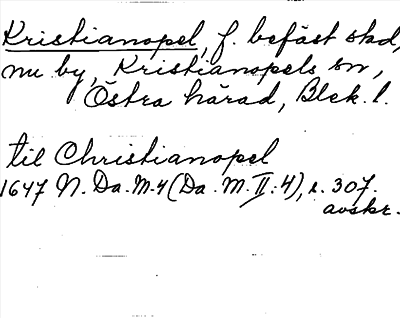 Kristianopel, f. befäst stad,
nu by, Kristianopels sn,
Östra härad, Blek. l.
til Christianopel
1647 N. Da. M. 4 (Da. M. II:4), s. 307.
avskr.